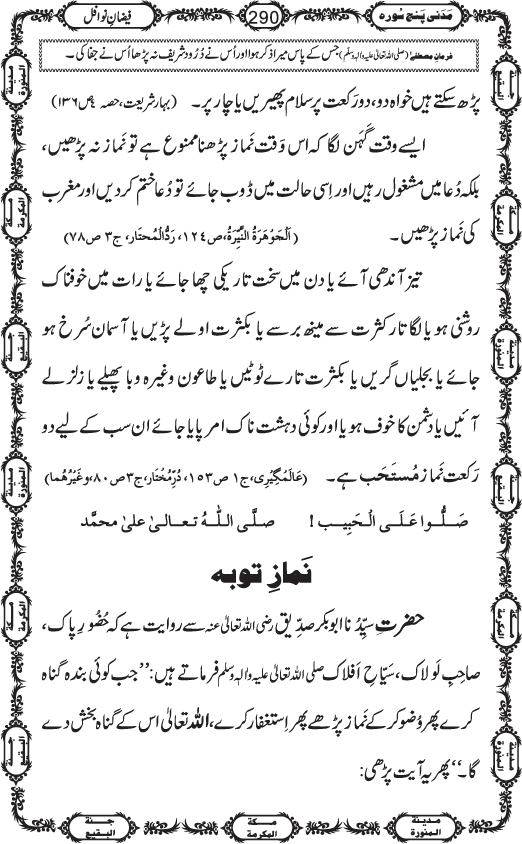 مَدَنی پَنج سُورہ
290
فیضانِ نوافل
فرمانِ مصطفےٰ (صلی اللہ تعالیٰ علیہ والہٖ وسلّم) جس کے پاس میرا ذکر ہوا اور اُس نے دُرُود شریف نہ پڑھا اُس نے جفا کی۔
پڑھ سکتے ہیں خواہ دو، دو رَکعت پر سلام پھیریں یا چار پر۔ (بہارِ شریعت، حصہ ۴ ص ۱۳۶)
ایسے وقت گَہن لگا کہ اس وَقت نَماز پڑھنا ممنوع ہے تو نَماز نہ پڑھیں،
بلکہ دُعا میں مشغول رہیں اور اِسی حالت میں ڈوب جائے تو دُعا ختم کر دیں اور مغرب
کی نَماز پڑھیں۔ (اَلْجَوْهَرَةُ النَّيِّرَة، ص ۱۲٤، رَدُّالْمُحتَار، ج۳ ص۷۸)
تیز آندھی آئے یا دن میں سخت تاریکی چھا جائے یا رات میں خوفناک
روشنی ہو یا لگا تار کثرت سے مینھ برسے یا بکثرت اولے پڑیں یا آسمان سُرخ ہو
جائے یا بجلیاں گریں یا بکثرت تارے ٹوٹیں یا طاعون وغیرہ وبا پھیلے یا زلزلے
آئیں یا دشمن کا خوف ہو یا اور کوئی دہشت ناک امر پایا جائے ان سب کے لیے دو
رَکعت نَماز مُستَحَب ہے۔ (عَالَمگِیْری، ج۱ ص ۱٥۳، دُرِّمُختَار، ج۳ ص ۸۰، وغَیْرُهُما)
صَلُّوا عَلَی الْحَبِیب! صلَّی اللّٰہُ تعالیٰ علیٰ محمَّد
نَمازِ توبہ
حضرتِ سیِّدُنا ابو بکر صدِّیق رضی اللہ تعالیٰ عنہ سے روایت ہے کہ حُضُورِ پاک،
صاحِبِ لَولاک، سَیّاحِ اَفلاک صلی اللہ تعالیٰ علیہ والہٖ وسلم فرماتے ہیں: ’’جب کوئی بندہ گناہ
کرے پھر وُضو کر کے نَماز پڑھے پھر اِستِغفار کرے، اللہ تعالیٰ اس کے گناہ بخش دے
گا۔‘‘ پھر یہ آیت پڑھی:
مدينة المنورة
مكة المكرمة
جنة البقيع
مدينة المنورة
مكة المكرمة
جنة البقيع
جنة البقيع
مكة المكرمة
مدينة المنورة
جنة البقيع
مكة المكرمة
مدينة المنورة
جنة البقيع
مكة المكرمة
مدينة المنورة